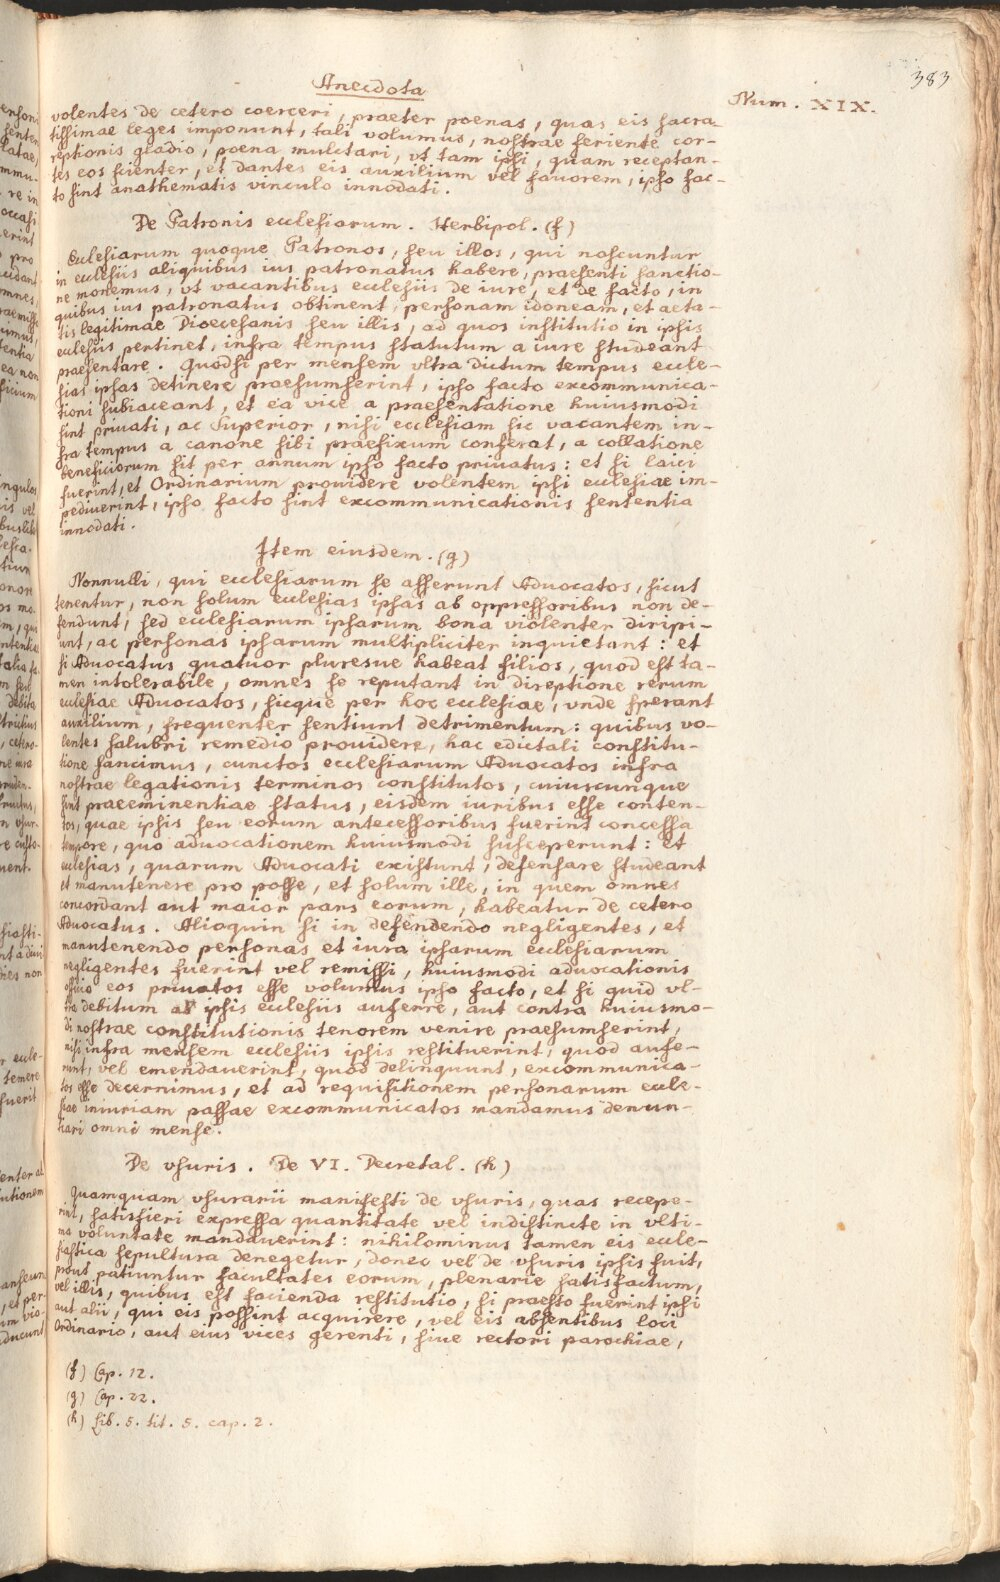 383
Anecdota
Num. XIX.
volentes de cetero coerceri, praeter poenas, quas eis sacra-
tissimae leges imponunt, tali volumus, nostrae feriente cor-
reptionis gladio, poena mulctari, vt tam ipsi, quam receptan-
tes eos scienter, et dantes eis auxilium vel fauorem, ipso fac-
to sint anathematis vinculo innodati.
De Patronis ecclesiarum. Herbipol. (f)
Ecclesiarum quoque Patronos, seu illos, qui noscuntur
in ecclesiis aliquibus ius patronatus habere, praesenti sanctio-
ne monemus, vt vacantibus ecclesiis de iure, et de facto, in
quibus ius patronatus obtinent, personam idoneam, et aeta-
tis legitimae Dioecesanis seu illis, ad quos institutio in ipsis
ecclesiis pertinet, infra tempus statutum a iure studeant
praesentare. Quodsi per mensem vltra dictum tempus eccle-
sias ipsas detinere praesumserint, ipso facto excommunica-
tioni subiaceant, et ea vice a praesentatione huiusmodi
sint priuati, ac Superior, nisi ecclesiam sic vacantem in-
fra tempus a canone sibi praefixum conferat, a collatione
beneficiorum sit per annum ipso facto priuatus: et si laici
fuerint, et Ordinarium prouidere volentem ipsi ecclesiae im-
pediuerint, ipso facto sint excommunicationis sententia
innodati.
Item eiusdem. (g)
Nonnulli, qui ecclesiarum se asserunt Aduocatos, sicut
tenentur, non solum ecclesias ipsas ab oppressoribus non de-
fendunt, sed ecclesiarum ipsarum bona violenter diripi-
unt, ac personas ipsarum multipliciter inquietant: et
si Aduocatus quatuor pluresue habeat filios, quod est ta-
men intolerabile, omnes se reputant in direptione rerum
ecclesiae Aduocatos, sicque per hoc ecclesiae, vnde sperant
auxilium, frequenter sentiunt detrimentum: quibus vo-
lentes salubri remedio prouidere, hac edictali constitu-
tione sancimus, cunctos ecclesiarum Aduocatos infra
nostrae legationis terminos constitutos, cuiuscunque
sint praeeminentiae status, eisdem iuribus esse conten-
tos, quae ipsis seu eorum antecessoribus fuerint concessa
tempore, quo aduocationem huiusmodi susceperunt: et
ecclesias, quarum Aduocati existunt, defensare studeant
et manutenere pro posse, et solum ille, in quem omnes
concordant aut maior pars eorum, habeatur de cetero
Aduocatus. Alioquin si in defendendo negligentes, et
manutenendo personas et iura ipsarum ecclesiarum
negligentes fuerint vel remissi, huiusmodi aduocationis
officio eos priuatos esse volumus ipso facto, et si quid vl-
tra debitum ab ipsis ecclesiis auferre, aut contra huiusmo-
di nostrae constitutionis tenorem venire praesumserint,
nisi infra mensem ecclesiis ipsis restituerint, quod aufe-
runt, vel emendauerint, quod delinquunt, excommunica-
tos esse decernimus, et ad requisitionem personarum eccle-
siae iniuriam passae excommunicatos mandamus denun-
tiari omni mense.
De vsuris. De VI. Decretal. (h)
Quamquam vsurarii manifesti de vsuris, quas recepe-
rint, satisfieri expressa quantitate vel indistincte in vlti-
ma voluntate mandauerint: nihilominus tamen eis eccle-
siastica sepultura denegetur, donec vel de vsuris ipsis fuit,
prout patiuntur facultates eorum, plenarie satisfactum,
vel illis, quibus est facienda restitutio, si praesto fuerint ipsi
aut alii, qui eis possint acquirere, vel eis absentibus loci
Ordinario, aut eius vices gerenti, siue rectori parochiae,
(f) Cap. 12.
(g) Cap. 22.
(h) Lib. 5. tit. 5. cap. 2.